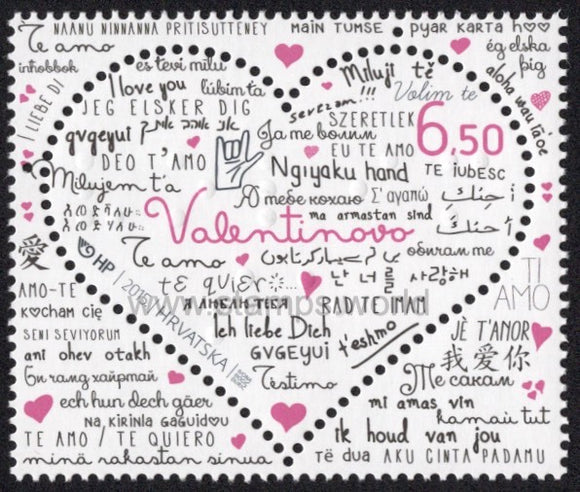 NAANU NINNANNA PRITISUTTENEY
MAIN TUMSE
PYAR KARTA HOO
Te amo
ég elska þig
intħobbok
es tevi mīlu
Miluji tě
aloha wau ia oe
I LIEBE DI
I love you
ľúbim ťa
sevezam!!!
Volim te
JEG ELSKER DIG
SZERETLEK
6,50
gvgeyui
אני אוהב אותך
Ја те волим
EU TE AMO
DEO T'AMO
Ngiyaku hand
TE IUBESC
Milujem ťa
Я тебе кохаю
Σ'αγαπώ
أحبك
ma armastan sind
Valentinovo
爱
HP
Te amo
обичам те
난 너를 사랑해
TI AMO
AMO-TE
te quiero...
kocham cię
www.stamps.world
2015
HRVATSKA
RAD TE IMAM
SENI SEVIYORUM
Ich liebe Dich
t'eshmo
JÈ T'ANOR
ani ohev otakh
GVGEYUI
我爱你
Би чамд хайртай
Testimo
Те сакам
ech hun dech gäer
mi amas vin
NA KIRINLA GAGUIDOU
hamaŭ tut
TE AMO / TE QUIERO
ik houd van jou
minä rakastan sinua
Të dua
AKU CINTA PADAMU